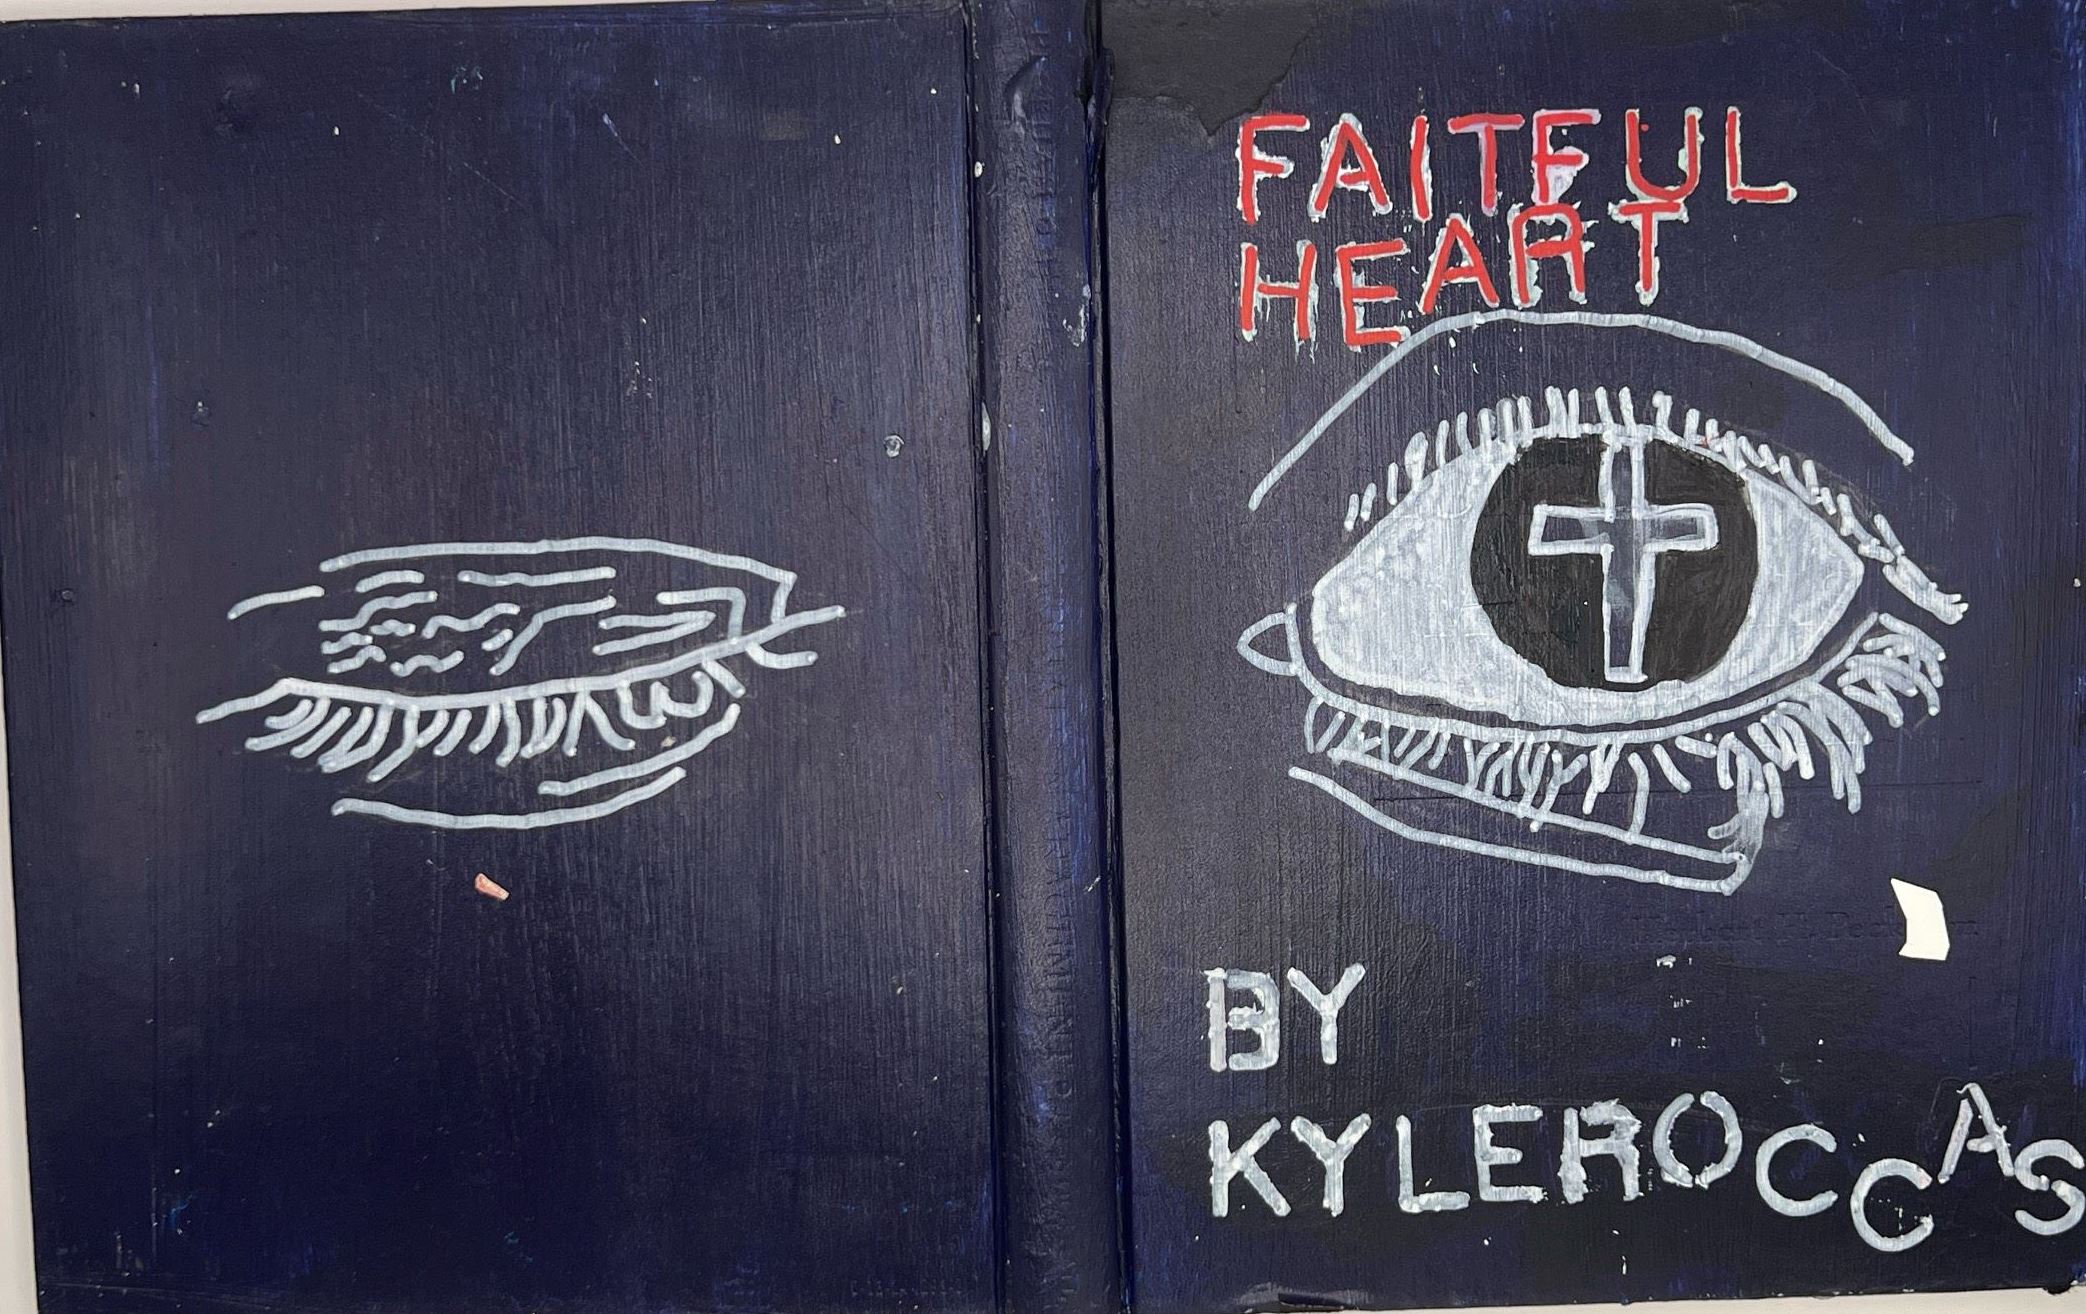 FAITFUL
HEART
BY
KYLEROCCAS